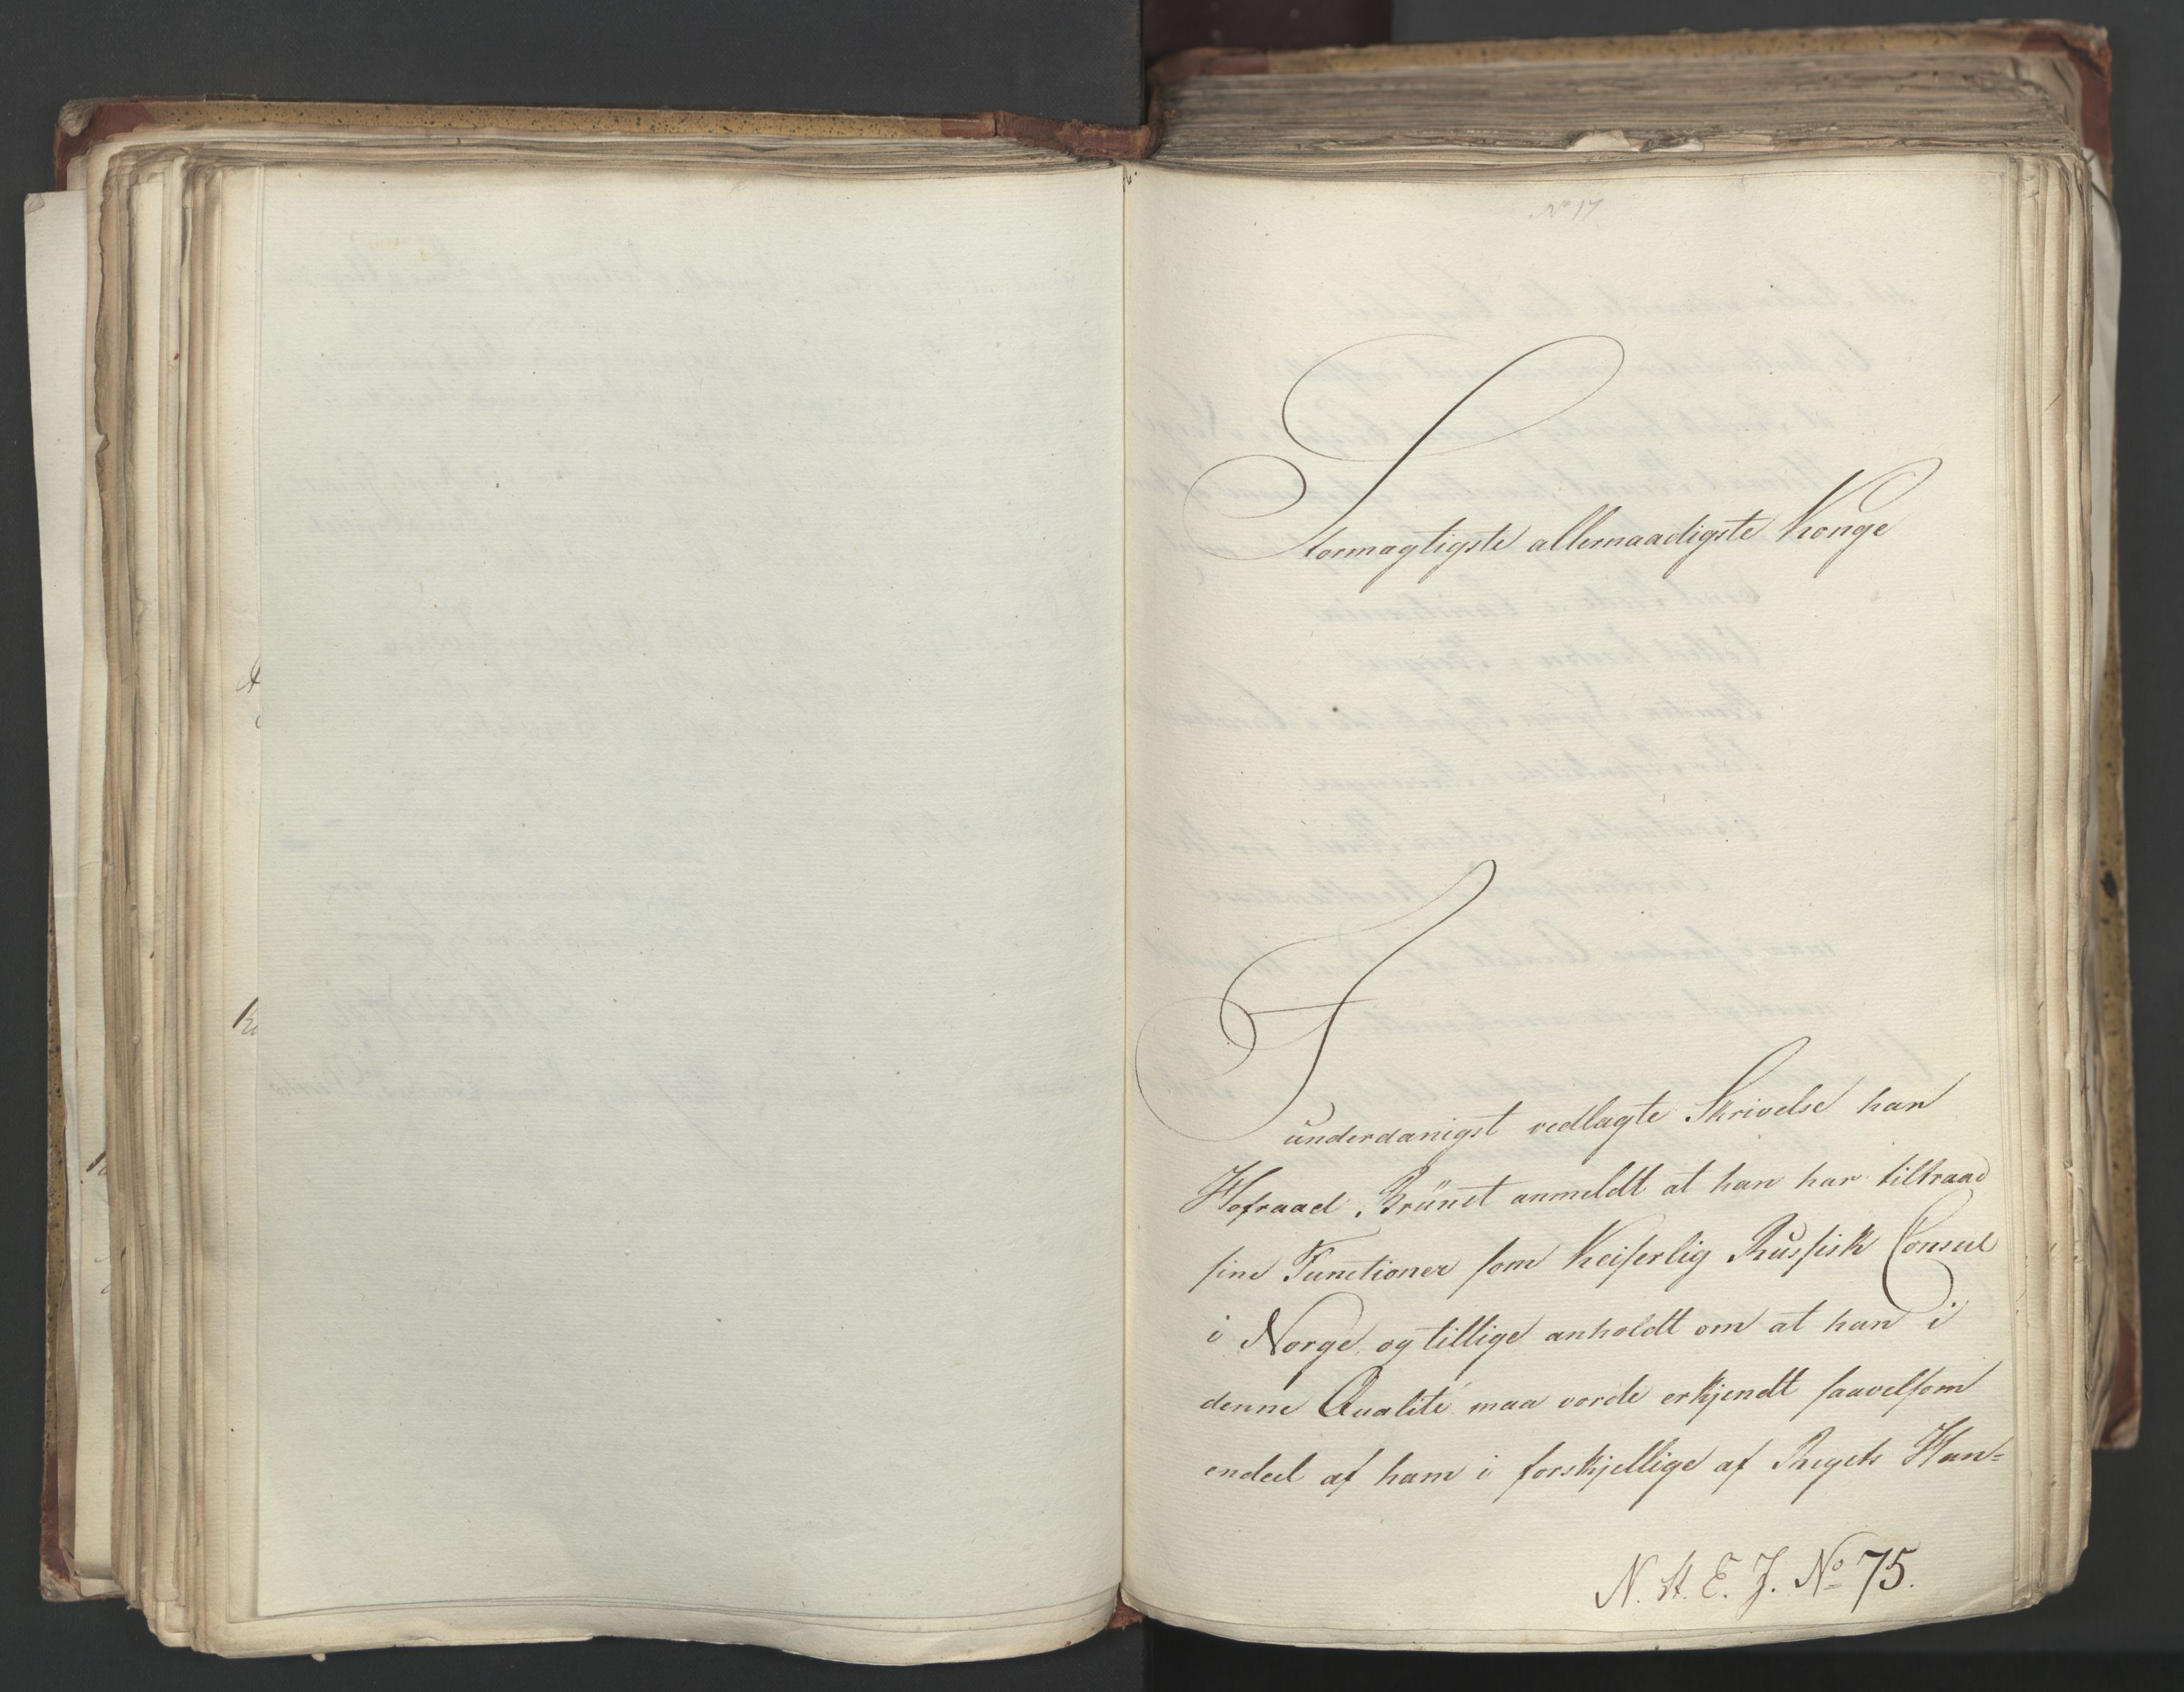 No 17
Stormægtigste allernaadigste Konge
I underdanigst vedlagte Skrivelse har
Hofraad Brünet anmeldt at han har tiltraad
sine Functioner som Keiserlig Russisk Consul
i Norge, og tillige anholdt om at han i
denne Qualité maa vorde erkjendt saavelsom
endeel af ham i forskjellige af Rigets Han=
N. H. E. J. No 75.